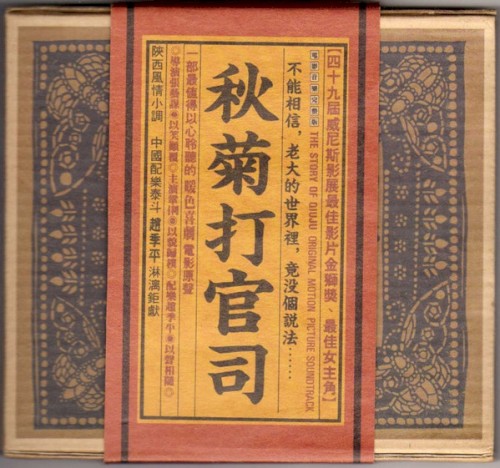 【四十九屆威尼斯影展最佳影片金獅獎、最佳女主角】
電影音樂完整版 THE STORY OF QIUJU ORIGINAL MOTION PICTURE SOUNDTRACK
不能相信，老大的世界裡，竟没個說法……
秋菊打官司
一部最值得以心聆聽的暖色喜劇電影原聲
◎導演張藝謀※以笑◎主演鞏俐※以◎配樂趙季平※以聲相隨◎
陝西風情小調 中國配樂泰斗 趙季平 淋漓鉅獻